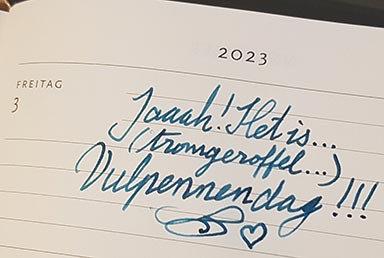 2023
FREITAG
3
Jaaah! Het is...
(tromgeroffel...)
Vulpennendag!!!